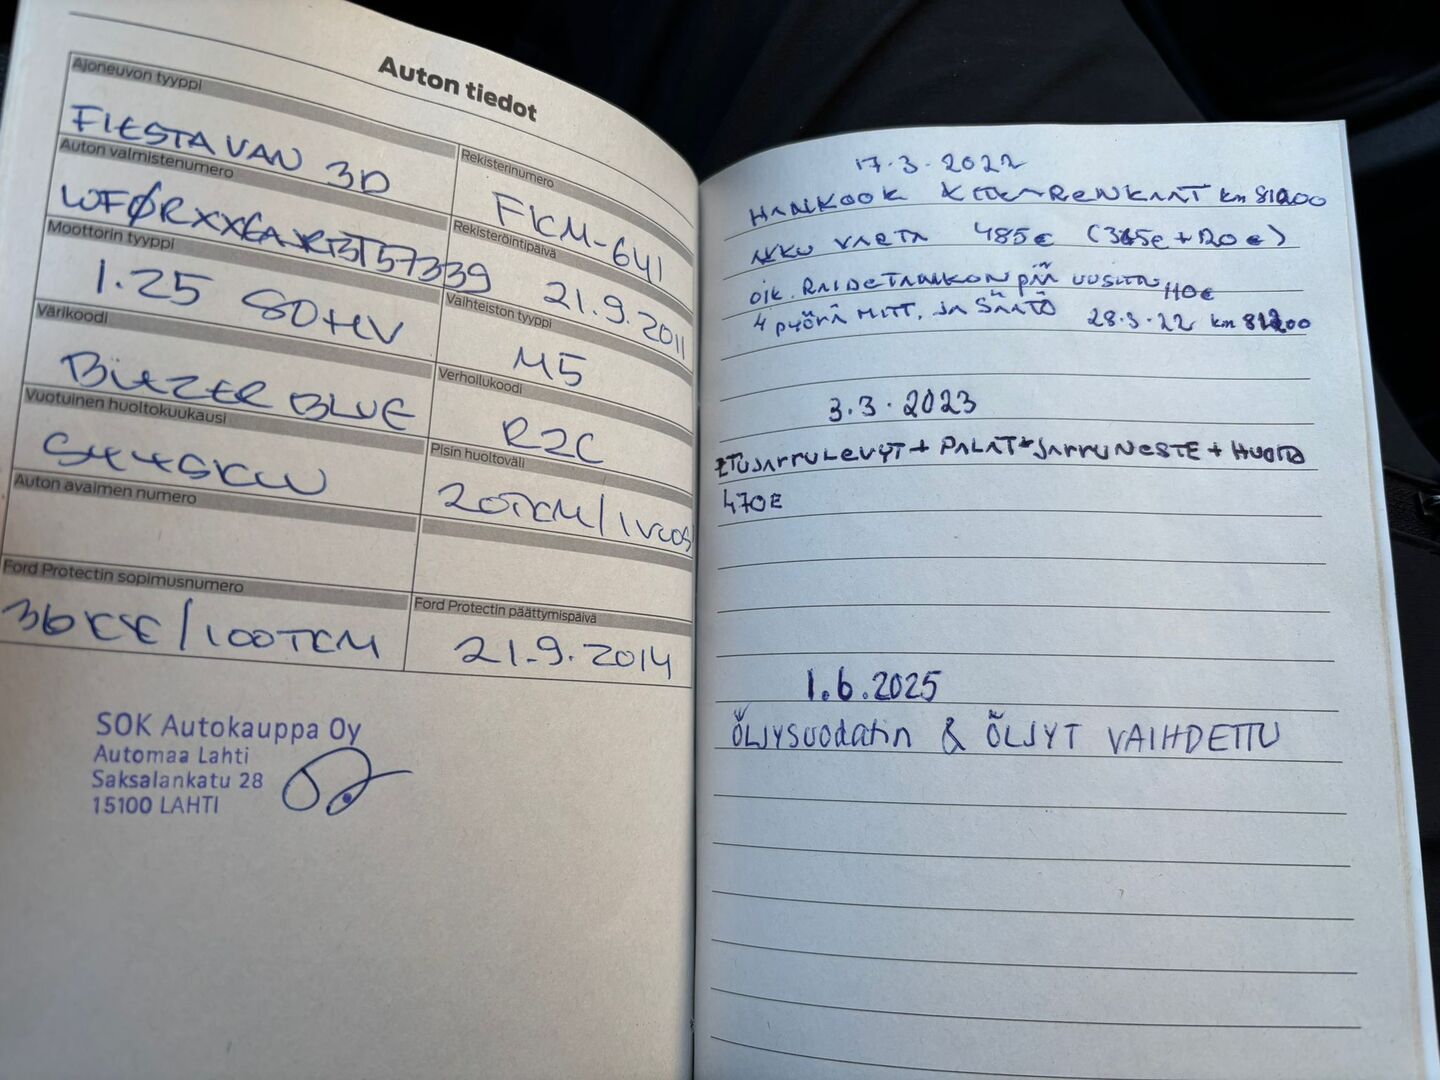 Auton tiedot
Ajoneuvon tyyppi
FIESTA VAN 3D
Rekisterinumero
FKM-641
Auton valmistenumero
Rekisteröintipäivä
21.9.2011
Moottorin tyyppi
1.25 80HV
Vaihteiston tyyppi
M5
Värikoodi
BLAZER BLUE
Verhoilukoodi
RZC
Vuotuinen huoltokuukausi
SYYSKUU
Pisin huoltoväli
20TKM/1VUOSI
Auton avaimen numero
Ford Protectin sopimusnumero
36KK/100TKM
Ford Protectin päättymispäivä
21.9.2014
SOK Autokauppa Oy
Automaa Lahti
Saksalankatu 28
15100 LAHTI
17.3.2022
HANKOOK KITKARENKAAT km
AKKU VARTA 485€ (365€ + 120€)
oik. RAIDETANKON pää UUSITTU 110€
4 pyörä MITT. JA SÄÄTÖ 28.3.22 km
3.3.2023
ETUJARRULEVYT + PALAT + JARRUNESTE + HUOLTO
470€
1.6.2025
ÖLJYSUODATIN & ÖLJYT VAIHDETTU